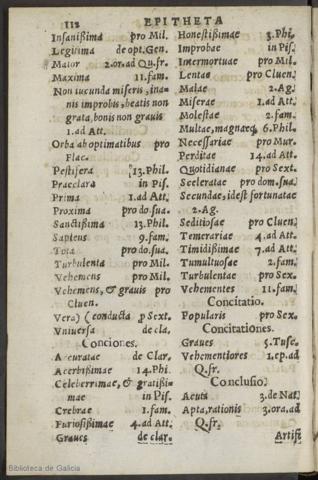 112 EPITHETA
Insanißima pro Mil.
Legitima de opt. Gen.
Maior 2. or. ad Qu. fr.
Maxima 11. fam.
Non iucunda miseris, ina-
nis improbis, beatis non
grata, bonis non grauis
1. ad Att.
Orba ab optimatibus pro
Flac.
Pestifera 13. Phil.
Praeclara in Pis.
Prima 1. ad Att.
Proxima pro do. sua.
Sanctißima 13. Phil.
Sapiens 9. fam.
Tota pro do. sua.
Turbulenta pro Mil.
Vehemens pro Mil.
Vehemens, & grauis pro
Cluen.
Vera) (conducta p Sext.
Vniuersa de cla.
Conciones.
Accuratae de Clar.
Acerbißimae 14. Phi.
Celeberrimae, & gratißi-
mae in Pis.
Crebrae 1. fam.
Furiosißimae 4. ad Att.
Graues de clar.
Honestißimae 3. Phi.
Improbae in Pis.
Intermortuae pro Mil.
Lentae pro Cluen.
Malae 2. Ag.
Miserae 1. ad Att.
Molestae 2. fam.
Multae, magnaeq; 6. Phil.
Necessariae pro Mur.
Perditae 14. ad Att.
Quotidianae pro Sext.
Sceleratae pro dom. sua.
Secundae, idest fortunatae
2. Ag.
Seditiosae pro Cluen.
Temerariae 4. ad Att.
Timidißimae 7. ad Att.
Tumultuosae 2. fam.
Turbulentae pro Sex.
Vehementes 11. fam.
Concitatio.
Popularis pro Sex.
Concitationes.
Graues 5. Tusc.
Vehementiores 1. ep. ad
Q. fr.
Conclusio.
Acuta 3. de Nat.
Apta, rationis 3. ora. ad
Q. fr.
Artifi
Biblioteca de Galicia